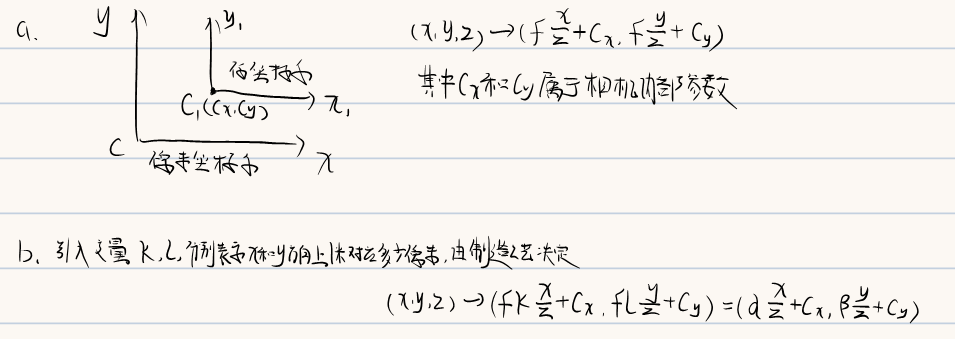 a.
y
y₁
像坐标系
C₁(Cx,Cy)
x₁
C
像素坐标系
x
(x,y,z)→(f x/z+Cx, f y/z+Cy)
其中Cx和Cy属于相机内部参数
b. 引入变量 K,L,分别表示x和y方向上1米对应多少像素,由制造工艺决定
(x,y,z)→(fK x/z+Cx, fL y/z+Cy)=(α x/z+Cx, β y/z+Cy)